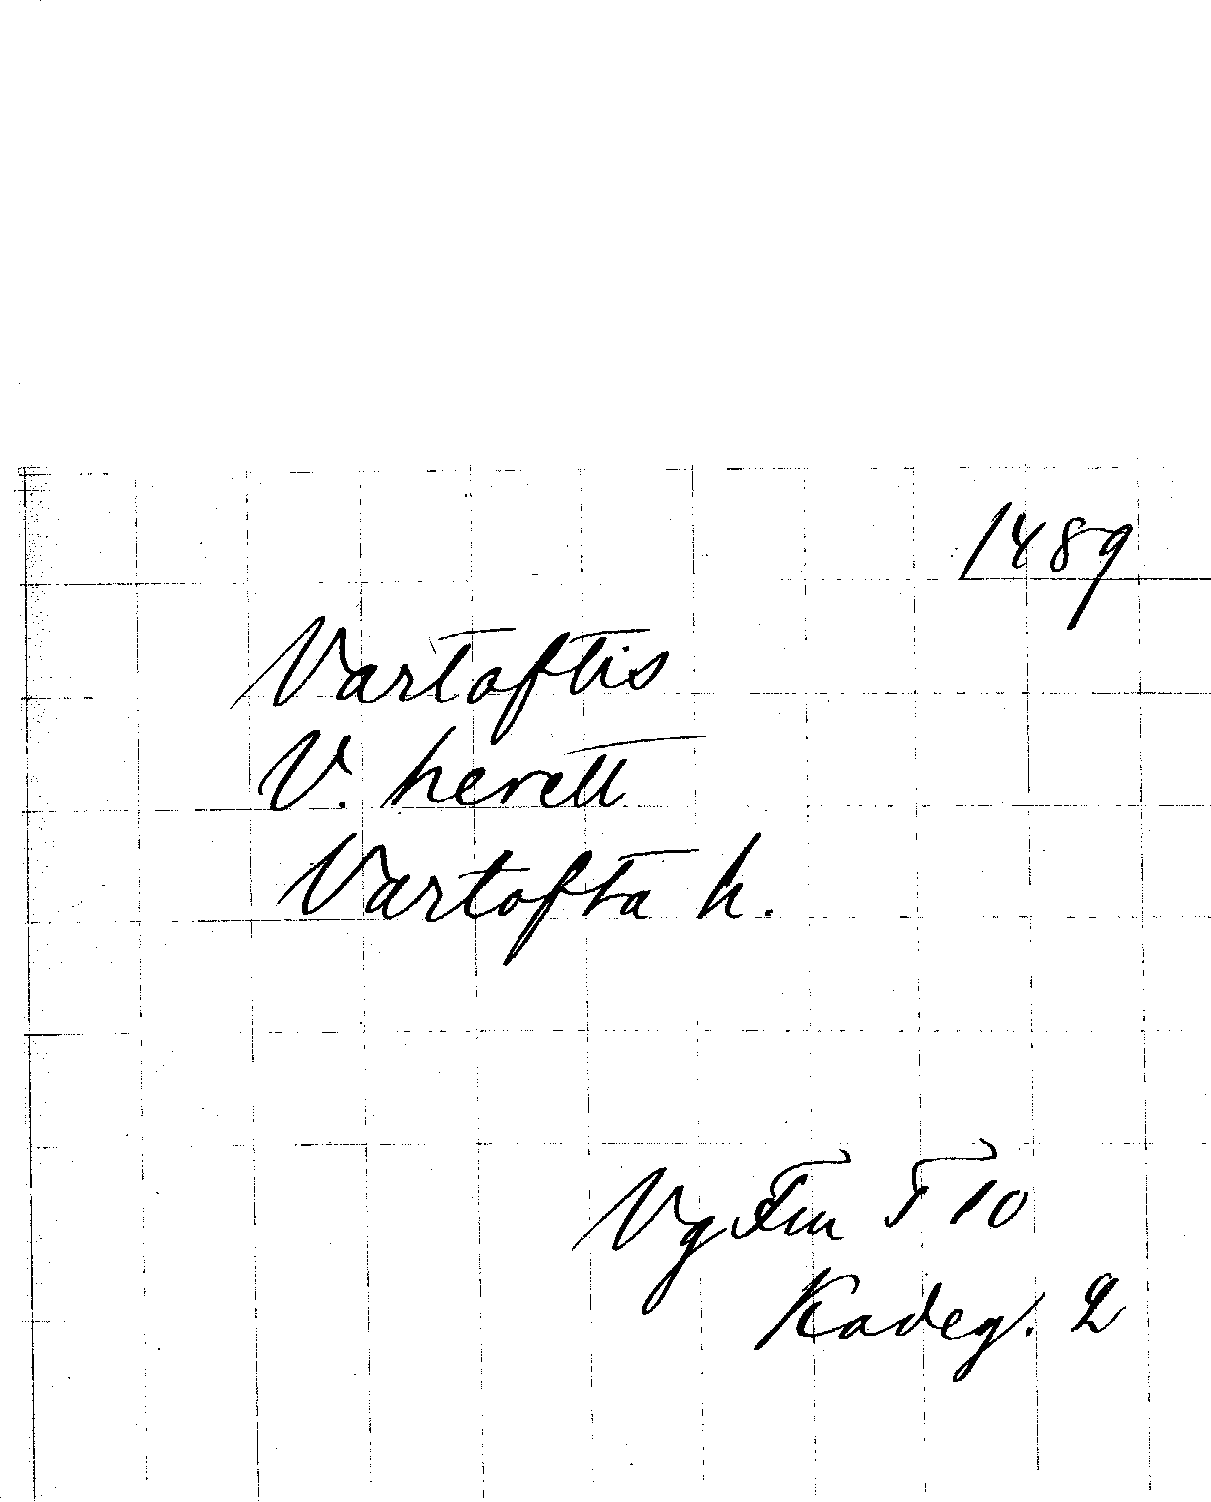 1489
Vartoftis
V. herett
Vartofta h.
Vg Fm F 10
Kadeg. 2